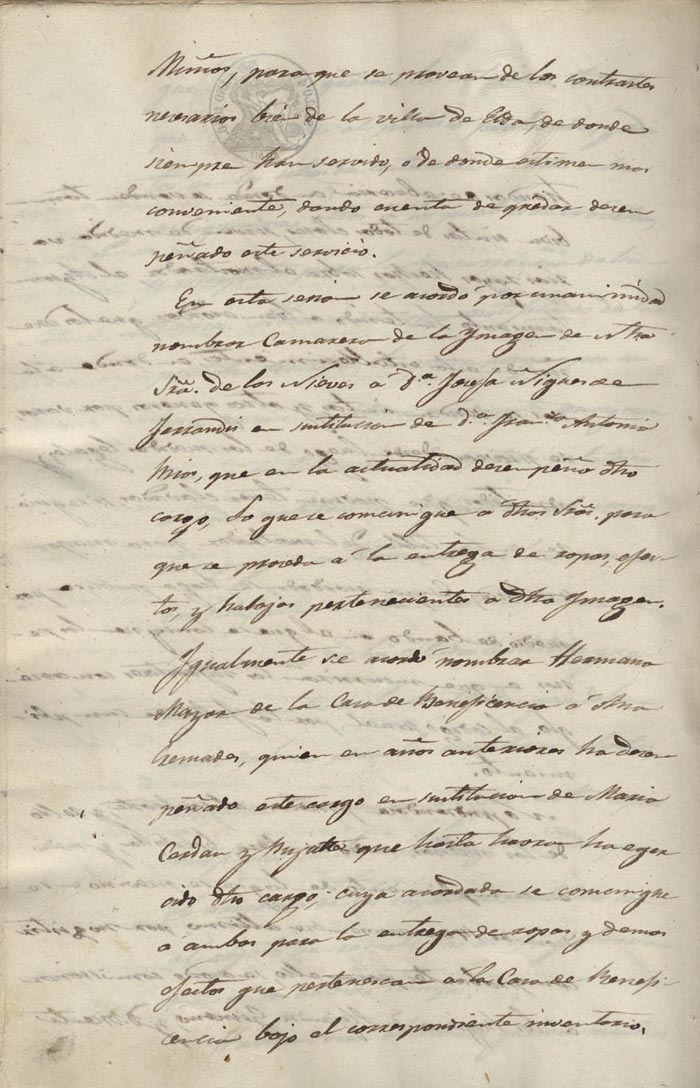 para que se provean de los contrastes
necesarios bien de la villa de Elda, de donde
siempre han servido, o de donde estimen mas
conveniente, dando cuenta de quedar desem
peñado este servicio.
En esta sesion se acordó por unanimidad
nombrar Camarera de la Ymagen de Ntra
Srã. de los Nieves á d.ª Josefa
Ferrandis en sustitucion de d.ª Fran.ca Antonia
que en la actualidad desempeña dho
cargo, Lo que se comunique a dhos Srẽs. para
que se proceda á la entrega de ropas, efec-
tos, y halajas pertenecientes a dha Ymagen.
Igualmente se acordó nombrar Hermana
Mayor de la Casa de Beneficencia á
Cremades, quien en años anteriores ha desem
peñado este cargo en sustitucion de Maria
Cerdan y que hasta haora ha eger
cido dho cargo, cuya acordada se comunique
a ambas para la entrega de ropas, y demas
efectos que pertenescan a la Casa de Benefi-
cencia bajo el correspondiente inventario.